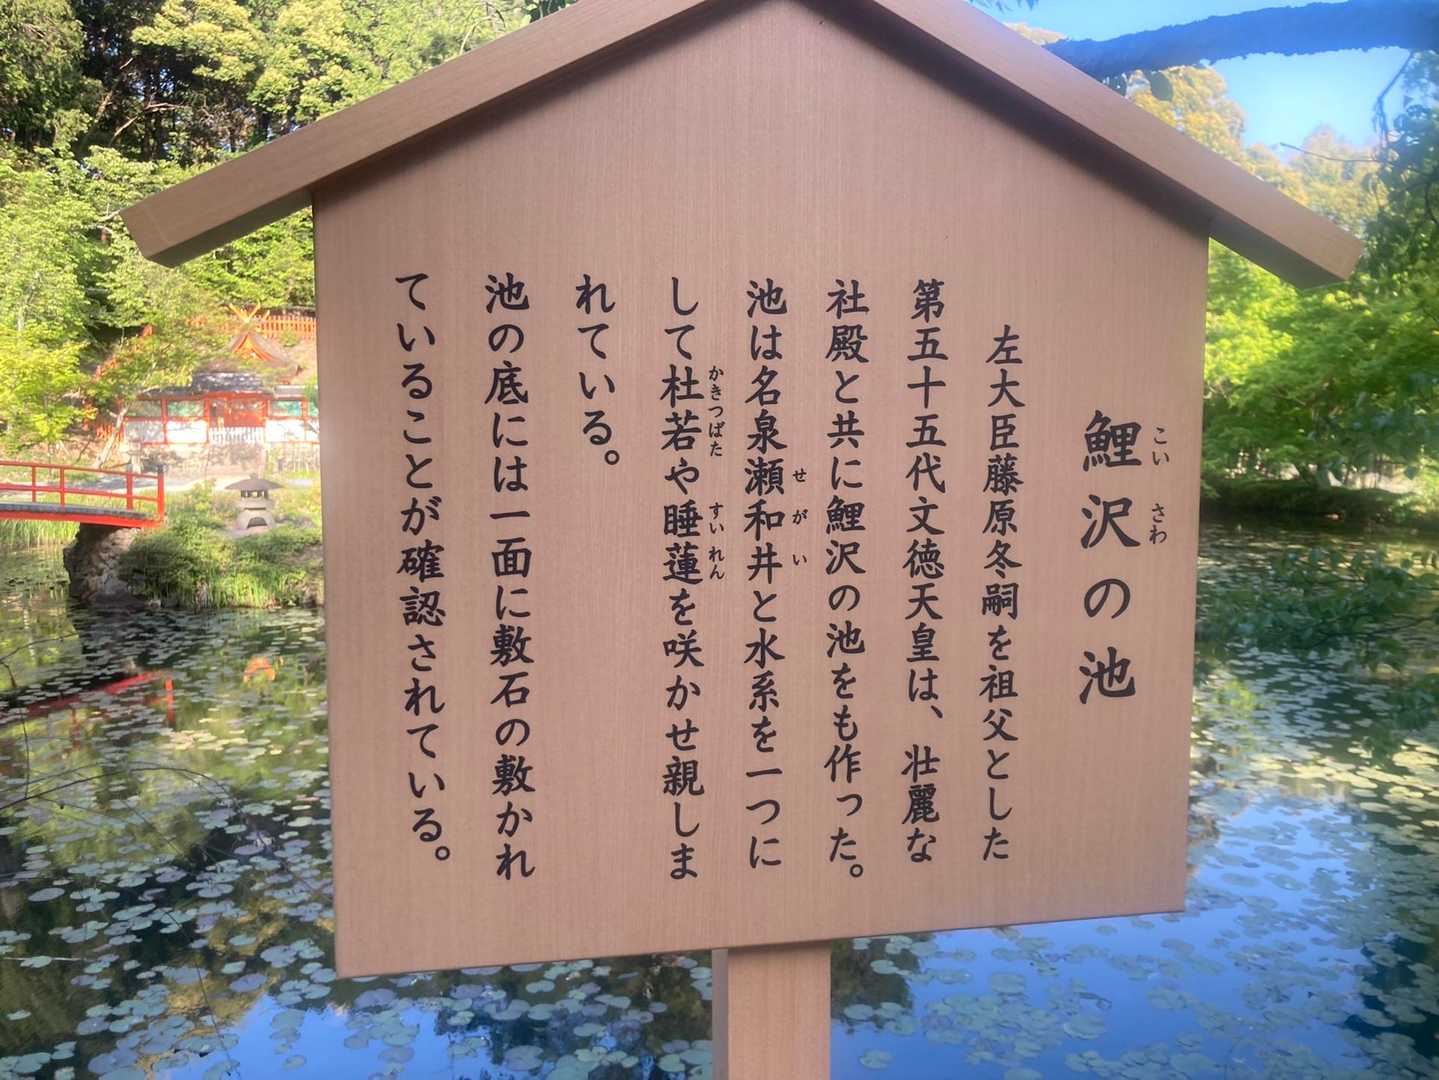 鯉沢の池
こい さわ
左大臣藤原冬嗣を祖父とした
第五十五代文徳天皇は、壮麗な
社殿と共に鯉沢の池をも作った。
池は名泉瀬和井と水系を一つに
せがい
して杜若や睡蓮を咲かせ親しま
かきつばた すいれん
れている。
池の底には一面に敷石の敷かれ
ていることが確認されている。